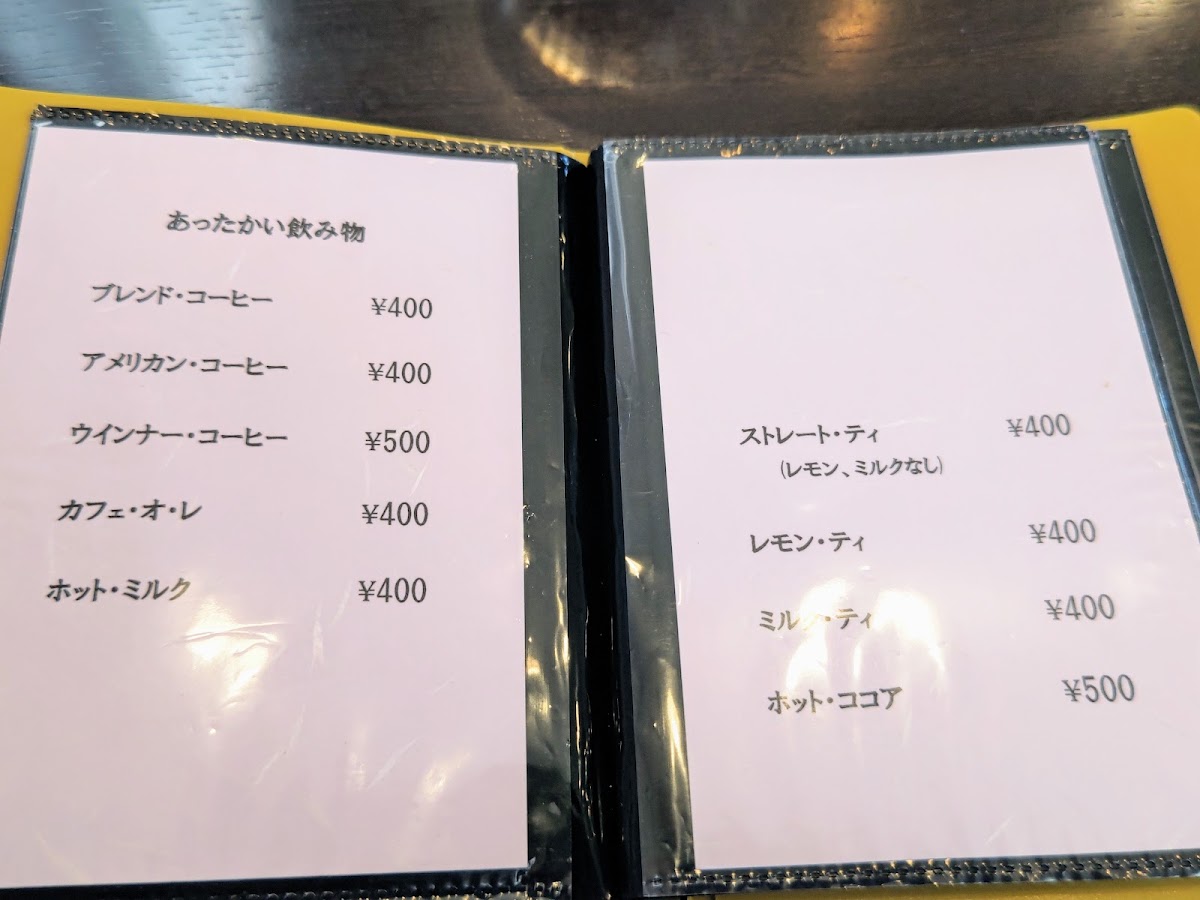 あったかい飲み物
ブレンド・コーヒー ¥400
アメリカン・コーヒー ¥400
ウインナー・コーヒー ¥500
カフェ・オ・レ ¥400
ホット・ミルク ¥400
ストレート・ティ ¥400
(レモン、ミルクなし)
レモン・ティ ¥400
ミルク・ティ ¥400
ホット・ココア ¥500